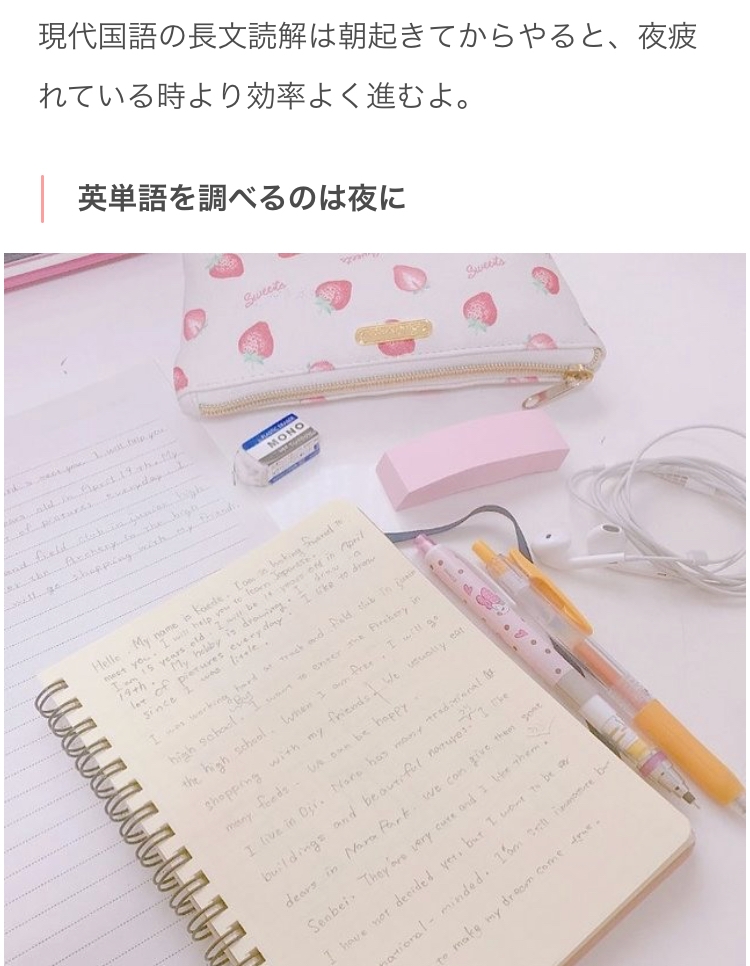 現代国語の長文読解は朝起きてからやると、夜疲
れている時より効率よく進むよ。
英単語を調べるのは夜に
Sweets
Sweets
Sweets
MONO
meet you. I will help you
old in April 19th. My
of pictures everyday. I
and field club in junior high
the Archery in the high
will go shopping with my friends.
Hello. My name is Kaede. I am looking forward to
meet you. I will help you to learn Japanese.
I am 15 years old. I will be 16 years old in April
19th. My hobby is drawing. I draw a
lot of pictures everyday. I like to draw
since I was little.
I was working hard at track and field club in junior
high school. I want to enter the Archery in
the high school. When I am free, I will go
shopping with my friends. We usually eat
many foods. We can be happy.
I live in Oji. Nara has many traditional
buildings and beautiful natures. I like
dears in Nara Park. We can give them some
Senbei. They are very cute and I like them.
I have not decided yet, but I want to be
national-minded. I am still immature but
to make my dream come true.